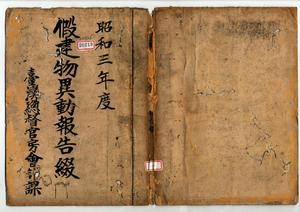 昭和三年度
假建物異動報告綴
臺灣總督官房會計課